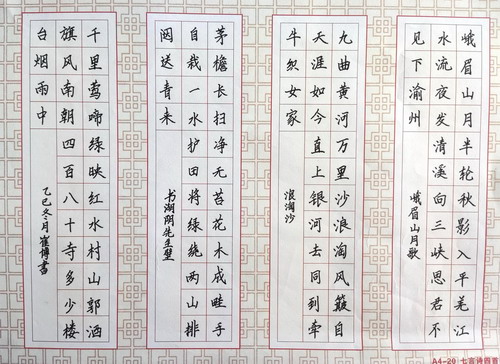 峨眉山月半轮秋影入平羌江
水流夜发清溪向三峡思君不
见下渝州
峨眉山月歌
九曲黄河万里沙浪淘风簸自
天涯如今直上银河去同到牵
牛织女家
浪淘沙
茅檐长扫净无苔花木成畦手
自栽一水护田将绿绕两山排
闼送青来
书湖阴先生壁
千里莺啼绿映红水村山郭酒
旗风南朝四百八十寺多少楼
台烟雨中
乙巳冬月崔博書
A4-20 七言诗四首